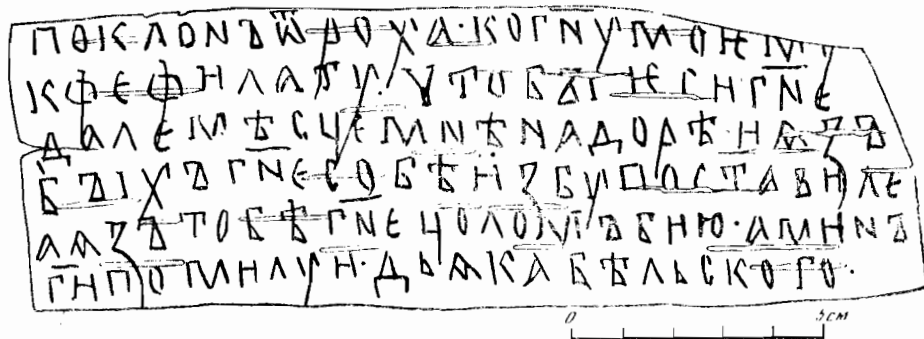 ПОКЛОNЪ Ѿ ДОХА·КОГNУМОЕМУ
КФЕФИЛАТУ·УТОБЫГNЕСИГNЕ
ДАЛЕМѢСЦЕМNѢNАДОРѢ·НАЗЪ
БЪІХЪГNЕСОБѢИЗБУПОСТАВИЛЕ
АѦЗЪТОБѢГNЕЦОЛОМЪБИЮ·АМИNЪ
ГИПОМИЛУИ·ДЬѦКАБѢЛЬСКОГО·
0 5см